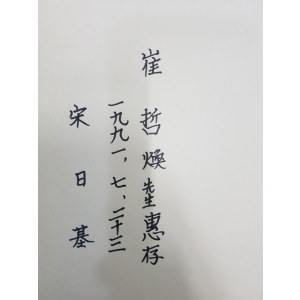 崔哲煥先生惠存
一九九一,七,二十三
宋日基